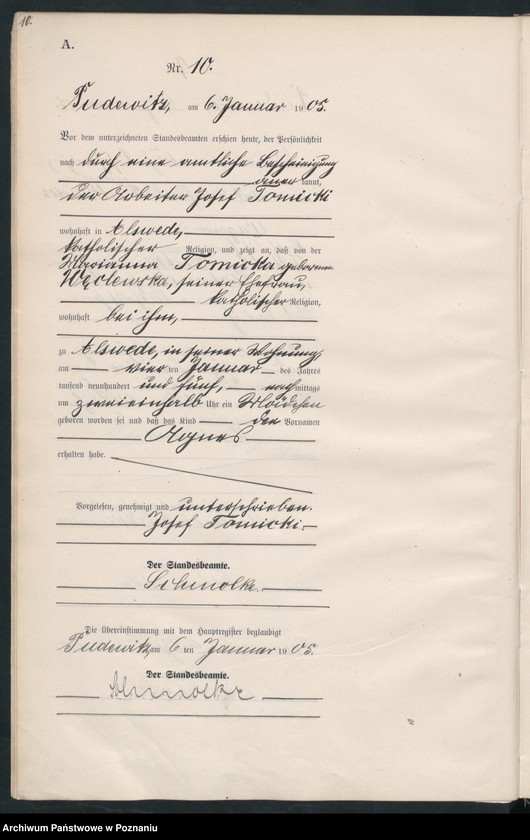 10.
A.
Nr. 10.
Pudewitz, am 6. Januar 1905.
Vor dem unterzeichneten Standesbeamten erschien heute, der Persönlichkeit
nach durch eine amtliche Bescheinigung
kannt,
der Arbeiter Josef Tomicki
wohnhaft in Alswede,
katholischer Religion, und zeigt an, daß von der
Marianna Tomicka geborenen
Węclewska, seiner Ehefrau,
katholischer Religion,
wohnhaft bei ihm,
zu Alswede, in seiner Wohnung,
am vierten Januar des Jahres
tausend neunhundert und fünf, nachmittags
um zweieinhalb Uhr ein Mädchen
geboren worden sei und daß das Kind den Vornamen
Agnes
erhalten habe.
Vorgelesen, genehmigt und unterschrieben.
Josef Tomicki.
Der Standesbeamte.
Schmolke.
Die Übereinstimmung mit dem Hauptregister beglaubigt
Pudewitz, am 6 ten Januar 1905.
Der Standesbeamte.
Schmolke
Archiwum Państwowe w Poznaniu